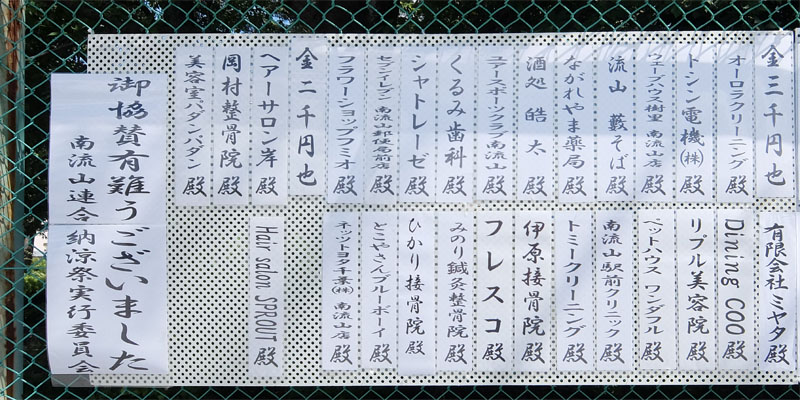 金三千円也
オーロラクリーニング 殿
トシン電機㈱ 殿
ウェーブハウス樹里 南流山店 殿
流山 藪そば 殿
ながれやま薬局 殿
酒処 皓太 殿
ニアースポーツクラブ南流山 殿
くるみ歯科 殿
シャトレーゼ 殿
セブンイレブン 南流山郵便局前店 殿
フラワーショップフミオ 殿
金二千円也
ヘアーサロン岸 殿
岡村整骨院 殿
美容室バダンバダン 殿
有限会社ミヤタ 殿
Dining COO 殿
リプル美容院 殿
ペットハウス ワンダフル 殿
南流山駅前クリニック 殿
トミークリーニング 殿
伊原接骨院 殿
フレスコ 殿
みのり鍼灸整骨院 殿
ひかり接骨院 殿
とこやさんブルーボーイ 殿
ネッツトヨタ千葉㈱ 南流山店 殿
Hair salon SPROUT 殿
御協賛有難うございました
南流山連合 納涼祭実行委員会